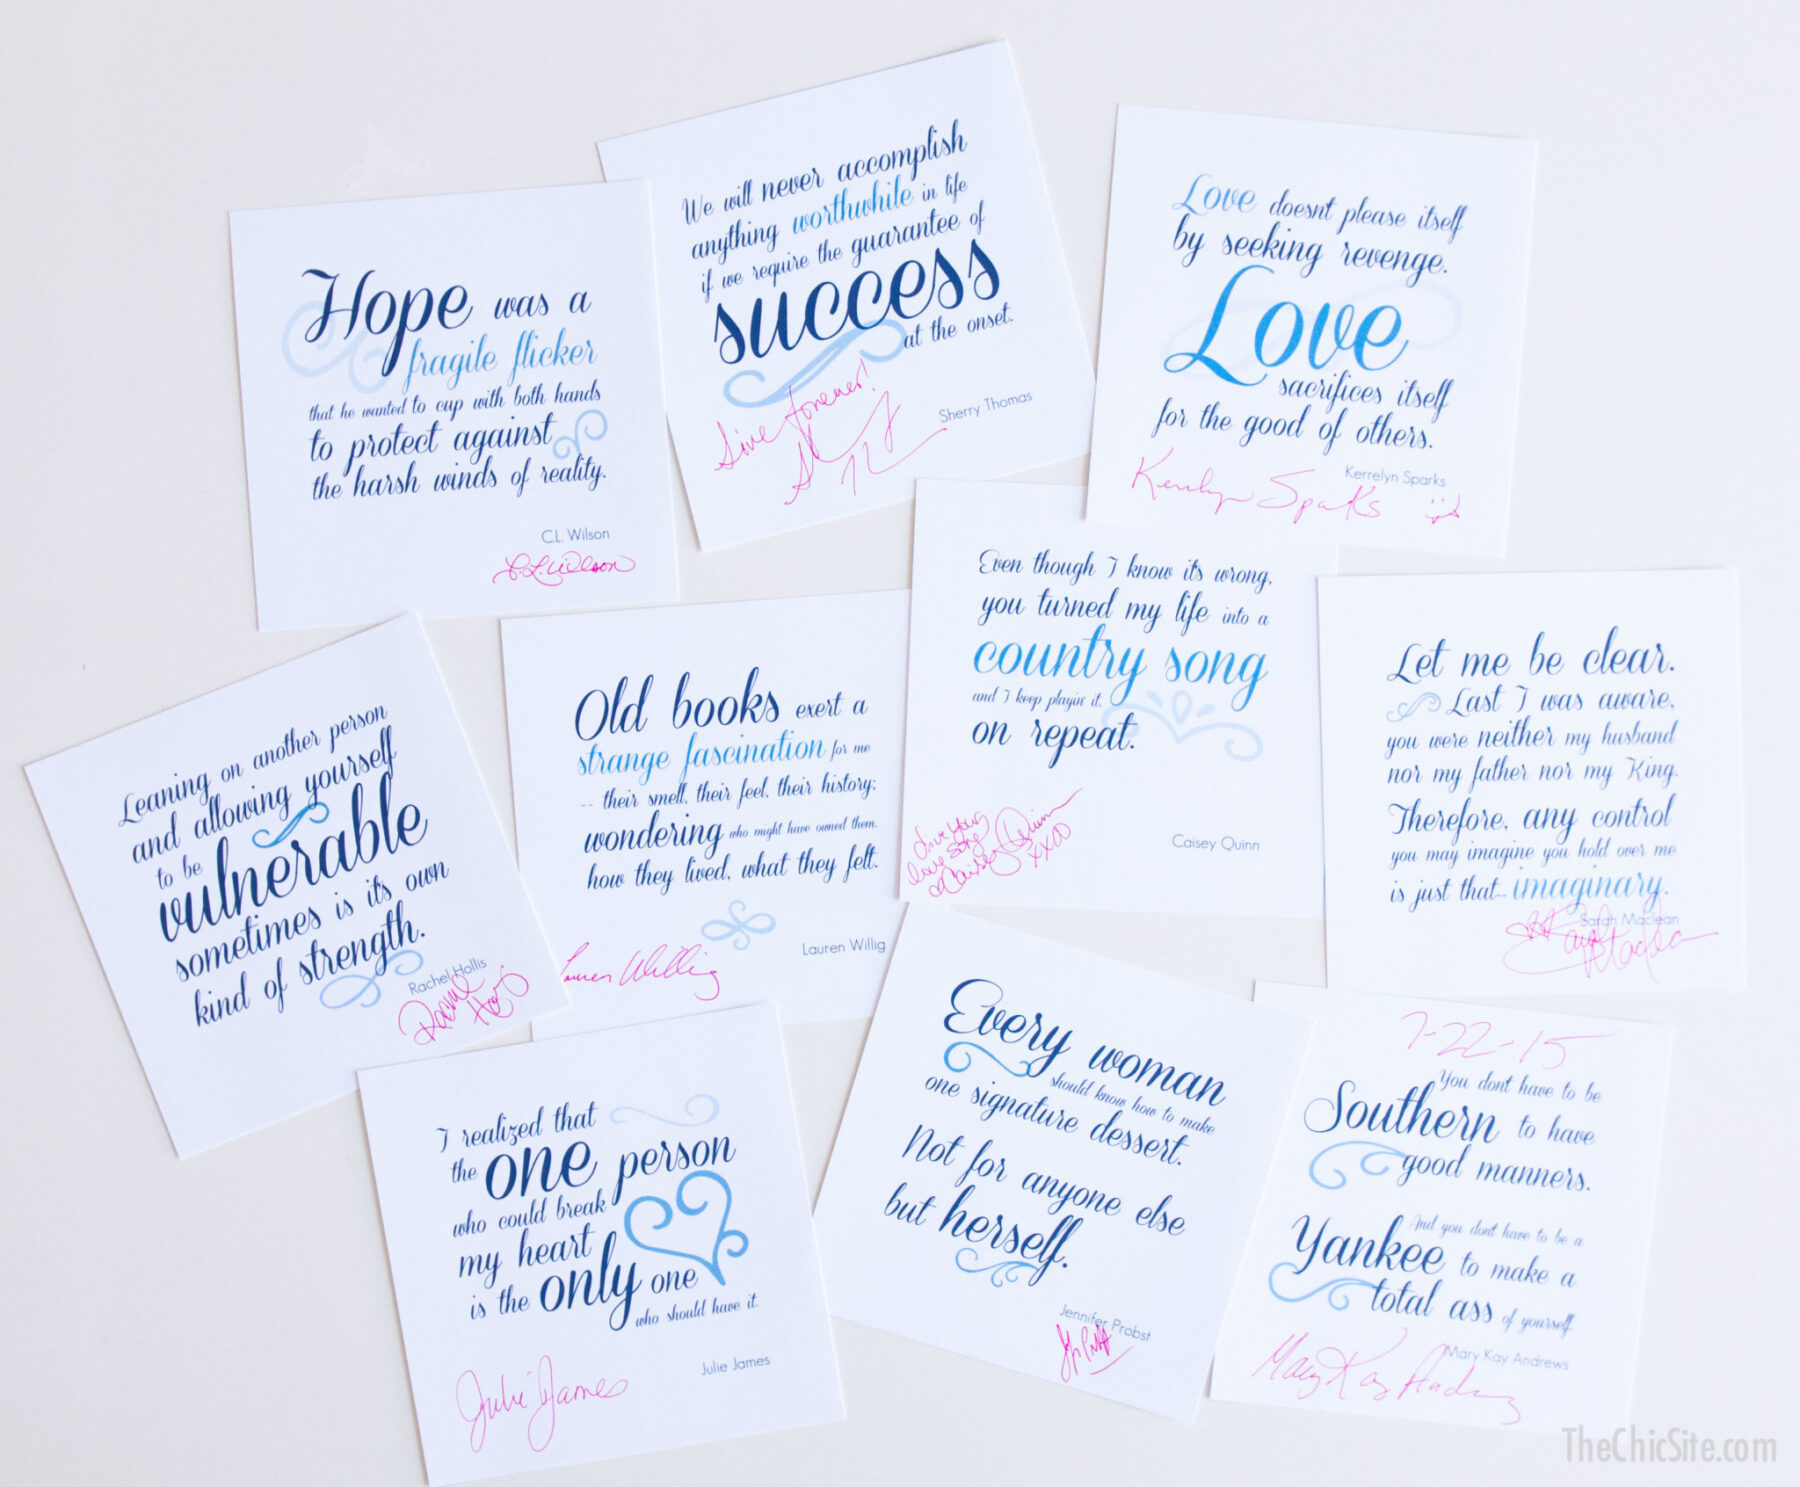 Hope was a
fragile flicker
that he wanted to cup with both hands
to protect against
the harsh winds of reality.
CL Wilson
C.L. Wilson
We will never accomplish
anything worthwhile in life
if we require the guarantee of
success
at the onset.
Sherry Thomas
forever!
Love doesnt please itself
by seeking revenge.
Love
sacrifices itself
for the good of others.
Kerrelyn Sparks
Kerrelyn Sparks
Leaning on another person
and allowing yourself
to be
vulnerable
sometimes is its own
kind of strength.
Rachel Hollis
Old books exert a
strange fascination for me
-- their smell, their feel, their history;
wondering who might have owned them,
how they lived, what they felt.
Lauren Willig
Lauren Willig
Even though I know its wrong,
you turned my life into a
country song
and I keep playin it,
on repeat.
Caisey Quinn
Live your
love song
Caisey Quinn
XXOO
Let me be clear.
Last I was aware,
you were neither my husband
nor my father nor my King.
Therefore, any control
you may imagine you hold over me
is just that... imaginary.
Sarah Maclean
I realized that
the one person
who could break
my heart
is the only one
who should have it.
Julie James
Julie James
Every woman
should know how to make
one signature dessert.
Not for anyone else
but herself.
Jennifer Probst
7-22-15
You dont have to be
Southern to have
good manners.
And you dont have to be a
Yankee to make a
total ass of yourself.
Mary Kay Andrews
Mary Kay Andrews
TheChicSite.com